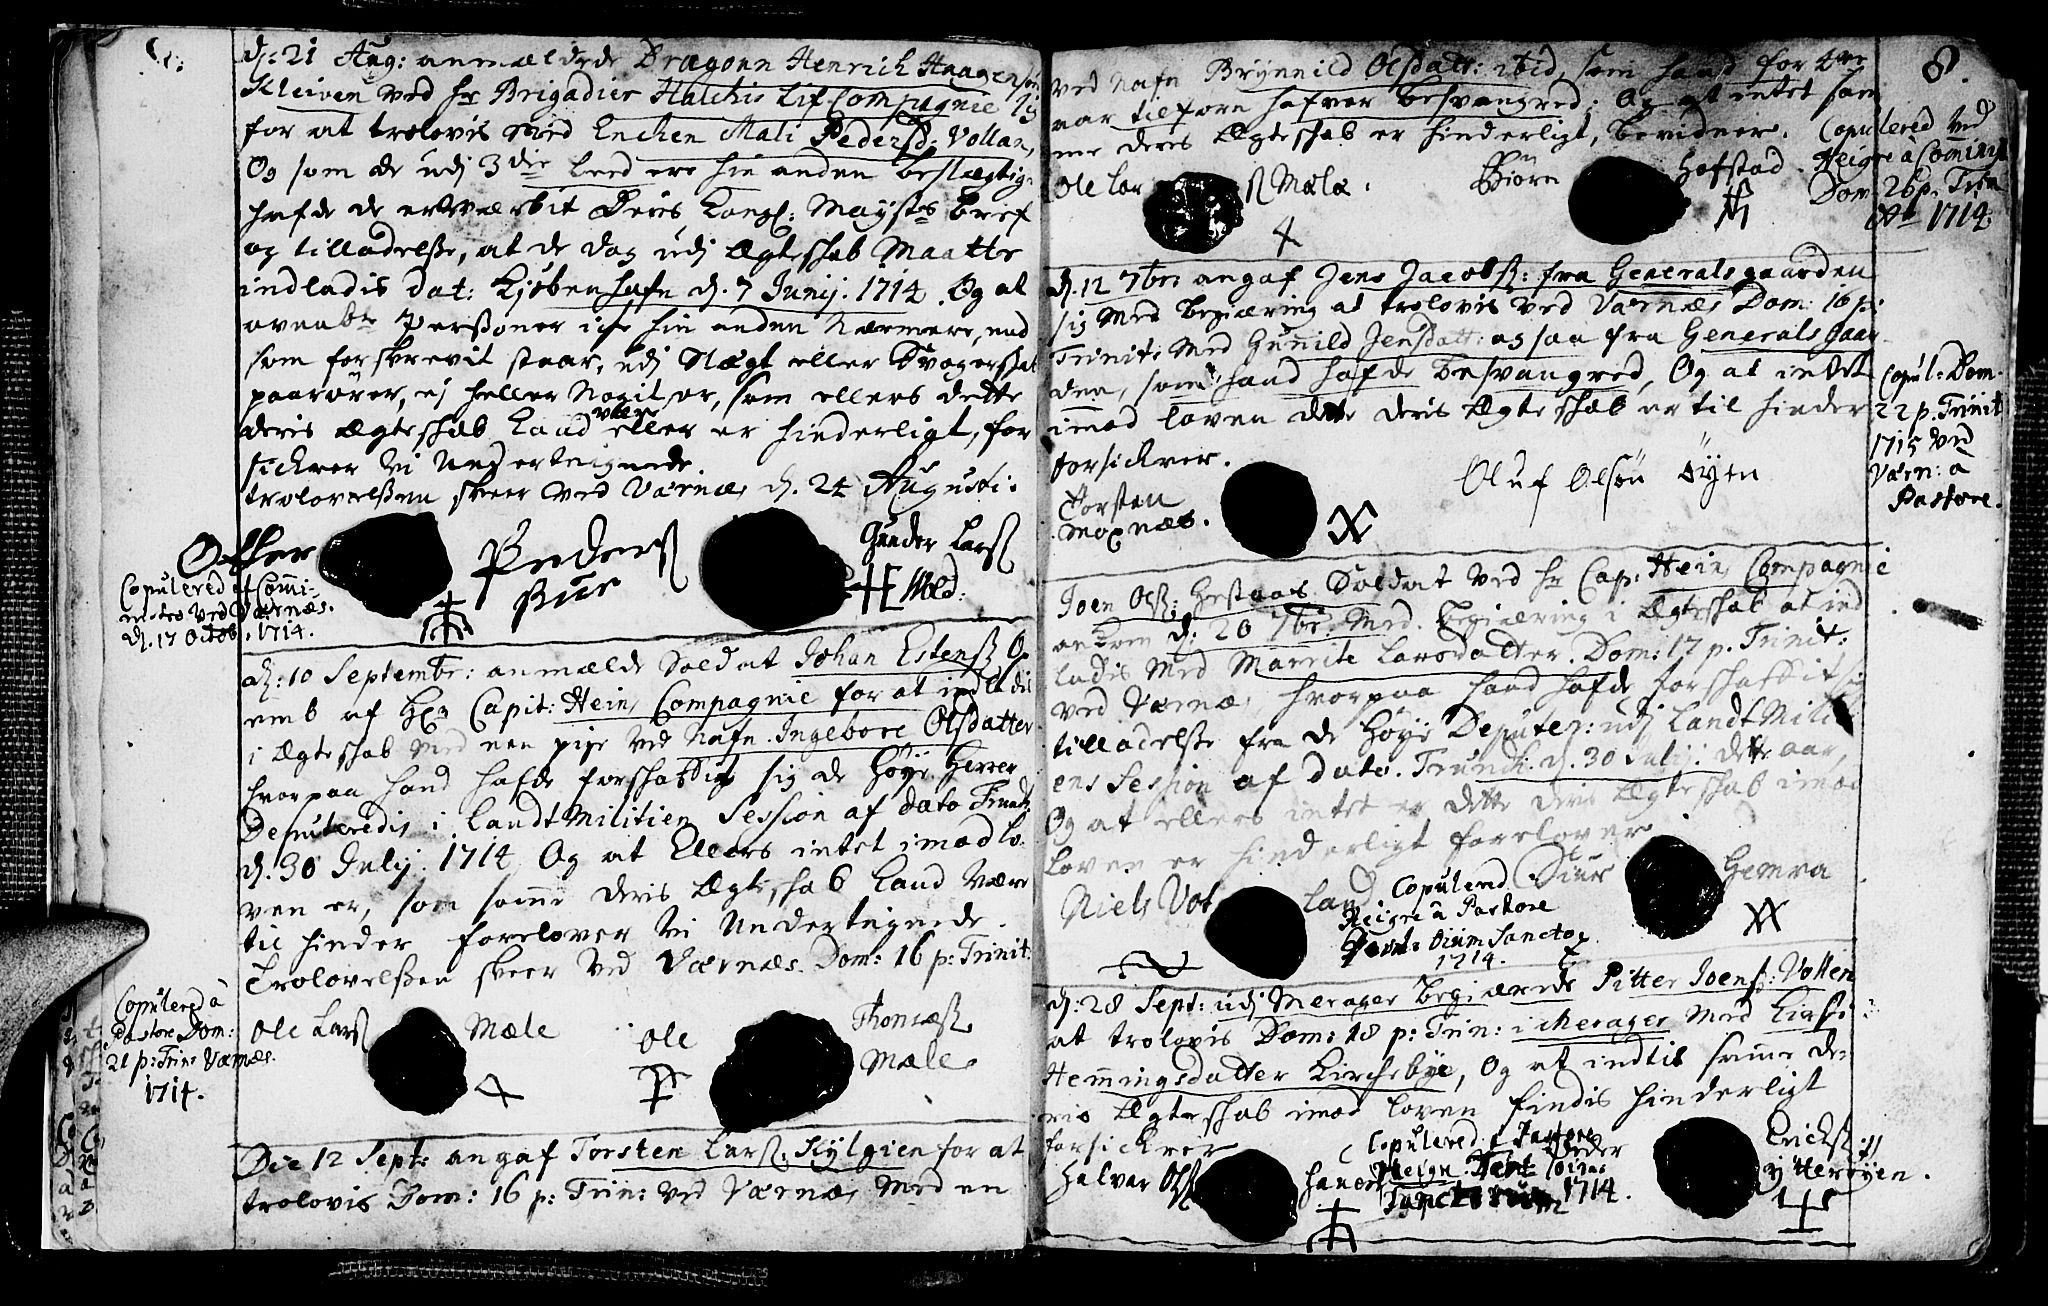 d: 21 Aug: anmældede Dragoun Henrich Haagensøn
Kleiven ved hr Brigadier Hatchis Lif Compagnie sig
for at trolovis med Enchen Mali Pedersd: Vollan,
Og som de udj 3die Leed ere hin anden beslægtig,
hafde de erhværbit Deris Kongl: Mayts bref
og tilladelsse, at de dog udj Ægteskab Maatte
indladis dat: Kjøbenhafn d. 7 Junij. 1714. Og at
ovenbte Perssoner iche hin anden Nærmere, end
som forskrevit staar, udj Slægt eller Svogerskab
paarører, ej heller Nogit er, som ellers dette
deris Ægteskab Kand være eller er hinderligt, for
sickrer Vi Underteignede.
trolovelssen skeer ved Værnæs d. 24 Augusti:
Peders
Rue
Gunder Larsß
Mod:
Copulered af Commi-
nistro ved Værnæs.
d. 17 Octob: 1714.
d: 10 Septembr: anmælde Soldat Johan Estensß O
af Hr Capit: Hein Compagnie for at indladis
i Ægteskab med een pige ved Nafn Ingebore Olsdatter
hvorpaa hand hafde forskaffet sig de Høye Herrer
Deputeredis i Landt Militien Session af dato Trundh:
d. 30 Julij. 1714 Og at Ellers intet imod lo-
ven er, som samme deris Ægteskab Kand være
til hinder forelover Vi Underteignede.
Trolovelssen skeer ved Værnæs. Dom: 16 p: Trinit:
Copulered à
Pastore Dom:
21 p: Trin: Værnæs.
1714.
Ole Larsß Mæle Ole Thomæsß
Mæle
Die 12 Sept: angaf Torsten Larsß. Kylgien for at
trolovis Dom: 16 p: Trin: ved Værnæs Med en
8.
ved Nafn Brynnild Olsdatt: ibid, som hand for
aar tilforn hafver besvangred: Og at intet sam
me deris Ægteskab er hinderligt, bevidner.
Ole Lar ß Mæle: Biørn Hofstad.
Copulered ved
Heigre à Comminist
Dom 26 p. Trin
Ao 1714.
d: 12 7bri angaf Jens Jacobsß: fra Generals gaarden
sig med begiæring at trolovis ved Værnæs Dom: 16 p:
Trinit: Med Gunnild Jensdatt: og saa fra Generals Gaar
den, som hand hafde besvangred, Og at intet
imod loven dette deris Ægteskab er til hinder
forsickrer.
Torsten
Moxnæs.
Oluf Olsøn Øyen
Copul: Dom.
22 p. Trinit
1715 ved
Værn: a
Pastore.
Joen Olsß: Soldat ved hr Cap: Hein Compagnie
ankom d: 20 7br: Med begiæring i Ægteskab at ind
ladis Med Marrite Larsdatter. Dom: 17 p. Trinit:
ved Værnæs, hvorpaa hand hafde forskaffit sig
tilladelsse fra de Høye Deputer: udj Landt Mili
ens Session af dato. Trundh: d. 30 Julij: dette aar,
Og at ellers intet er dette deris Ægteskab imod
Loven er hinderligt forelover
Niels Vot land Siur Hemra
Copulered
Heigre à Pastore
Sancto
1714.
d: 28 Sept: udj Merager begiærede Pitter Joensß: Vollen
at trolovis Dom: 18 p: Trin: i Merager Med Kirsti
Hemmingsdatter Kirchebye, Og at indtit samme de-
ris Ægteskab imod loven findis hinderligt
forsickrer
Halvar Olsß Peder Ericksß:
Copulered à Pastore
Heigre
1714.
Ytterøyen.